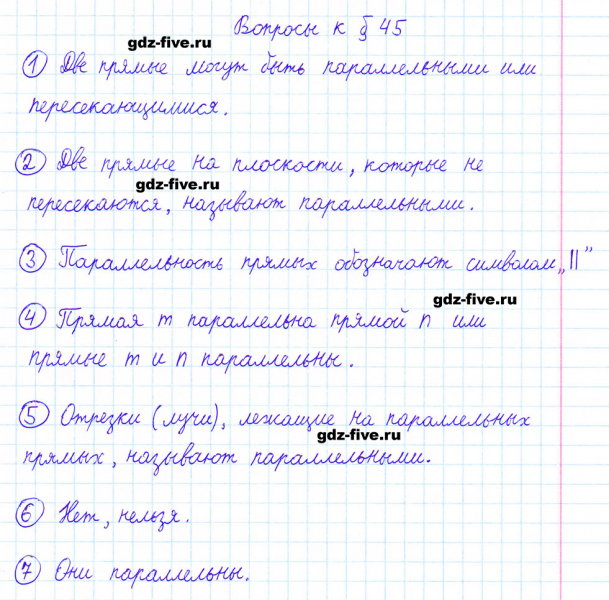 Вопросы к § 45
gdz-five.ru
① Две прямые могут быть параллельными или
пересекающимися.
② Две прямые на плоскости, которые не
gdz-five.ru
пересекаются, называют параллельными.
③ Параллельность прямых обозначают символом „||”
gdz-five.ru
④ Прямая m параллельна прямой n или
прямые m и n параллельны.
⑤ Отрезки (лучи), лежащие на параллельных
gdz-five.ru
прямых, называют параллельными.
⑥ Нет, нельзя.
⑦ Они параллельны.